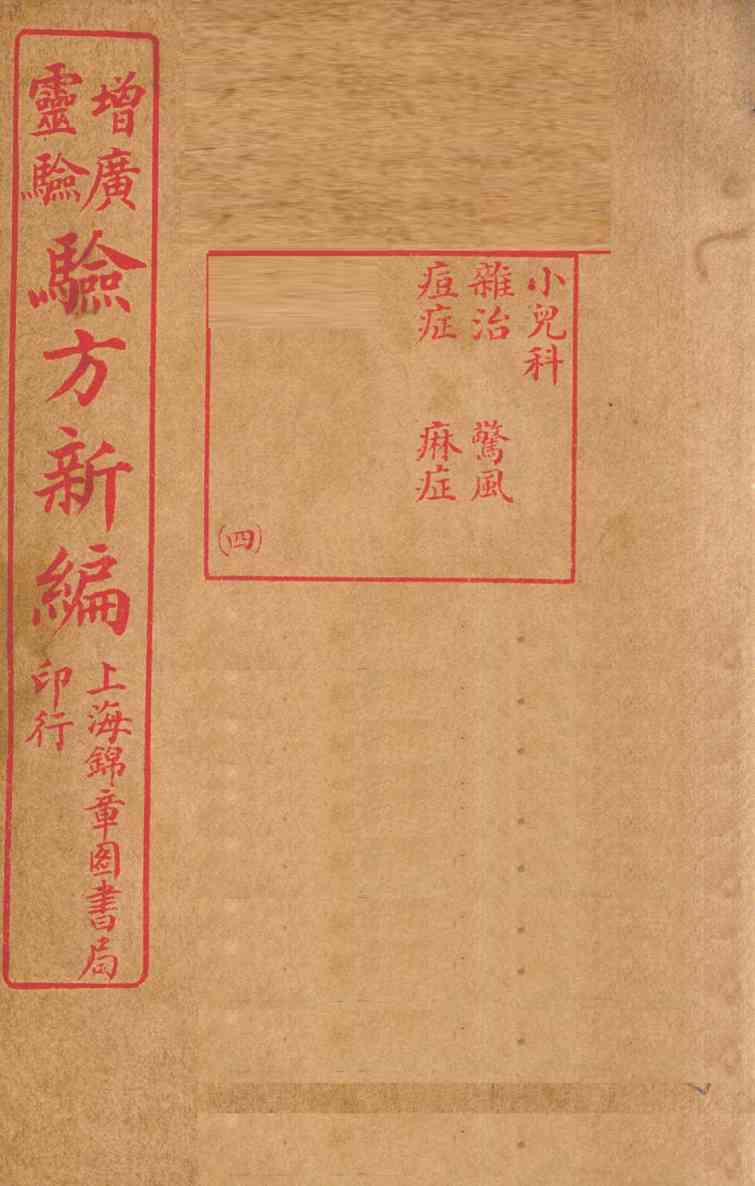 增廣
靈驗
驗方新編
上海錦章圖書局
印行
小兒科
雜治 驚風
痘症 痳症
(四)